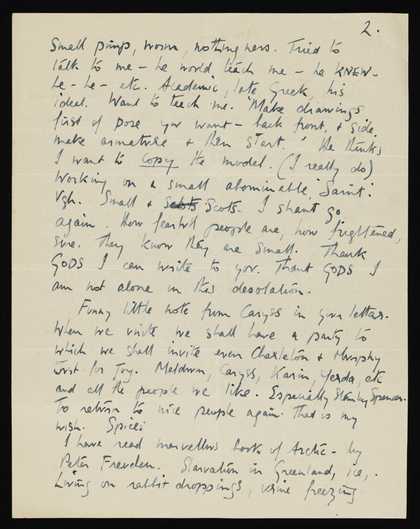 2.
Small pimp, worm, nothingness. Tried to
talk to me – he would teach me – he KNEW –
he – he – etc. Academic, late Greek, his
ideal. Want to teach me. 'Make drawings
first of pose you want – back front, & side,
make armature & then start.' He thinks
I want to copy the model. (I really do)
Working on a small abominable 'Saint'.
Ugh. Small & Scots Scots. I shan't go
again. How fearful people are, how frightened,
sure. They know they are small. Thank
GODS I can write to you. Thank GODS I
am not alone in this desolation.
Funny little note from Caryss in your letter.
When we unite we shall have a party to
which we shall invite even Charleton & Murphy
just for Joy. Meldrum, Caryss, Karin, Yerda, etc
and all the people we like. Especially Stanley Spencer.
To return to nice people again. That is my
wish.
I have read marvellous book of Arctic – by
Peter Freuchen. Starvation in Greenland, ice,
Living on rabbit droppings, urine freezing